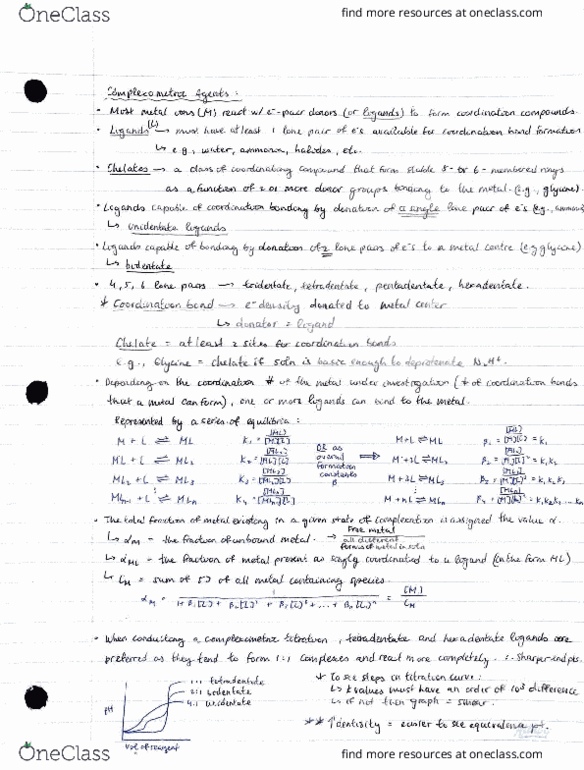 OneClass
find more resources at oneclass.com
Complexometric Agents:
• Most metal ions (M) react w/ e⁻-pair donors (or ligands) to form coordination compounds.
• Ligands (L) → must have at least 1 lone pair of e⁻s available for coordination bond formation
↳ e.g., water, ammonia, halides, etc.
• Chelates → a class of coordinating compound that form stable 5- or 6-membered rings
as a function of 2 or more donor groups bonding to the metal. (e.g., glycine).
• Ligands capable of coordination bonding by donation of a single lone pair of e⁻s (e.g., ammonia)
↳ unidentate ligands
• Ligands capable of bonding by donation of 2 lone pairs of e⁻s to a metal centre (e.g glycine)
↳ bidentate
• 4, 5, 6 lone pairs → tetradentate, pentadentate, hexadentate.
* Coordination bond → e⁻ density donated to metal center
↳ donator = ligand
Chelate = at least 2 sites for coordination bonds
e.g., Glycine = chelate if soln is basic enough to deprotonate
• Depending on the coordination # of the metal under investigation (# of coordination bonds
that a metal can form), one or more ligands can bind to the metal.
Represented by a series of equilibria:
M + L ⇌ ML K₁ = [ML]/[M][L] OR as overall formation constants β ⟹ M+L ⇌ ML β₁ = [ML]/[M][L] = K₁
ML + L ⇌ ML₂ K₂ = [ML₂]/[ML][L] M+2L ⇌ ML₂ β₂ = [ML₂]/[M][L]² = K₁K₂
ML₂ + L ⇌ ML₃ M+3L ⇌ ML₃
MLₙ₋₁ + L ⇌ MLₙ M+nL ⇌ MLₙ
• The total fraction of metal existing in a given state of complexation is assigned the value α.
↳ αM – the fraction of unbound metal. → free metal / all different forms of metal in soln
↳ αML – the fraction of metal present as singly coordinated to a ligand (in the form ML)
↳ CM = sum of [ ] of all metal containing species
αM = 1 / 1 + β₁[L] + β₂[L]² + β₃[L]³ + ... + βₙ[L]ⁿ = [M] / CM
• When conducting a complexometric titration, tetradentate and hexadentate ligands are
preferred as they tend to form 1:1 complexes and react more completely. ∴ sharper end pts.
1:1 tetradentate
2:1 bidentate
4:1 unidentate
pH
vol of reagent
* To see steps in titration curve:
↳ K values must have an order of 10³ difference
↳ if not then graph = smear.
** ↑ denticity = easier to see equivalence pt.
OneClass
find more resources at oneclass.com